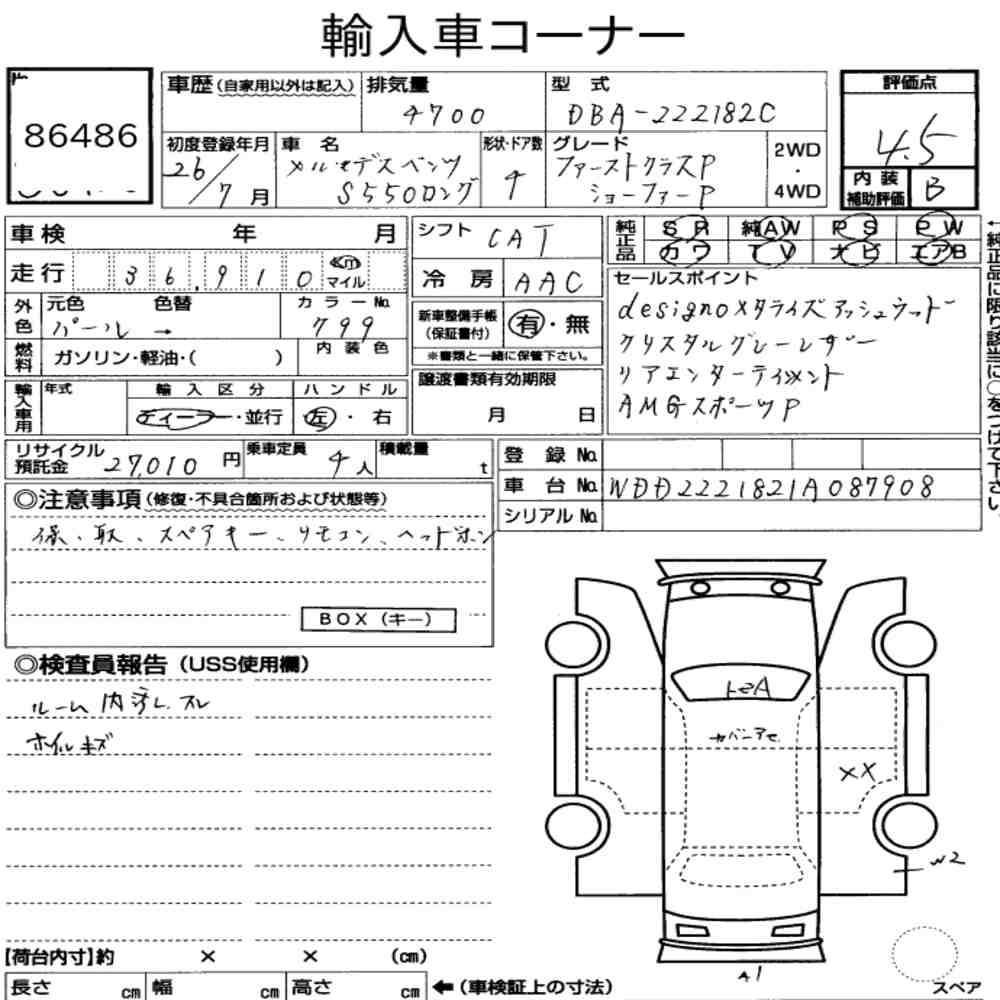 輸入車コーナー
86486
車歴(自家用以外は記入) 排気量 4700 型式 DBA-222182C
初度登録年月 26/7月 車名 メルセデスベンツ S550ロング 形状・ドア数 4 グレード ファーストクラスP ショーファーP 2WD・4WD
評価点 4.5
内装補助評価 B
車検 年 月
走行 36,910 km マイル
外色 元色 パール → 色替 カラーNo. 799
燃料 ガソリン・軽油・( ) 内装色
輸入車用 年式 輸入区分 ディーラー・並行 ハンドル 左・右
シフト CAT
冷房 AAC
新車整備手帳(保証書付) 有・無
※書類と一緒に保管下さい。
譲渡書類有効期限
月 日
純正品 SR 純AW PS PW
カワ TV ナビ エアB
セールスポイント
designoメタライズアッシュウッド
クリスタルグレーレザー
リアエンターテイメント
AMGスポーツP
←純正品に限り該当に○をつけて下さい。
リサイクル預託金 27,010円 乗車定員 4人 積載量 t
登録No.
車台No. WDD2221821A087908
シリアルNo.
◎注意事項(修復・不具合箇所および状態等)
保、取、スペアキー、リモコン、ヘッドホン
BOX(キー)
◎検査員報告(USS使用欄)
ルーム内汚レ.スレ
ホイルキズ
カバンアセ
XX
W2
A1
【荷台内寸】約 × × (cm)
長さ cm 幅 cm 高さ cm ←(車検証上の寸法)
スペア